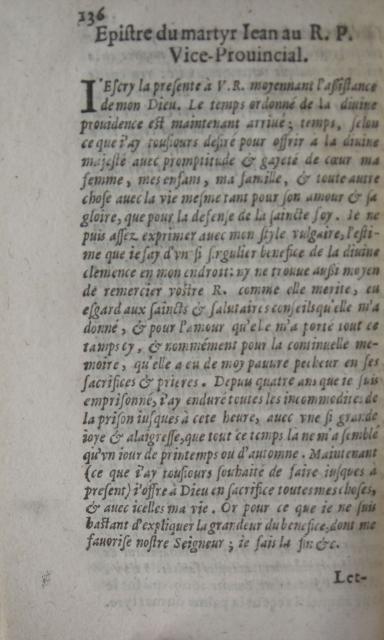 136
Epistre du martyr Iean au R. P.
Vice-Prouincial.
I'Escry la presente à V.R. moyennant l'assistance
de mon Dieu. Le temps ordonné de la diuine
prouidence est maintenant arriué; temps, selon
ce que i'ay tousiours desiré pour offrir a la diuine
majesté auec promptitude & gayeté de cœur ma
femme, mes enfans, ma famille, & toute autre
chose auec la vie mesme tant pour son amour & sa
gloire, que pour la defense de la saincte foy. Ie ne
puis assez exprimer auec mon style vulgaire, l'esti-
me que ie fay d'vn si singulier benefice de la diuine
clemence en mon endroit: ny ne trouue aussi moyen
de remercier vostre R. comme elle merite, eu
esgard aux saincts & salutaires conseils qu'elle m'a
donné, & pour l'amour qu'elle m'a porté tout ce
tamps cy, & nommément pour la continuelle me-
moire, qu'elle a eu de moy pauure pecheur en ses
sacrifices & prieres. Depuis quatre ans que ie suis
emprisonné, i'ay enduré toutes les incommoditez de
la prison iusques à cete heure, auec vne si grande
ioye & alaigresse, que tout ce temps la ne m'a semblé
qu'vn iour de printemps ou d'automne. Maintenant
(ce que i'ay tousiours souhaité de faire iusques a
present) i'offre à Dieu en sacrifice toutes mes choses,
& auec icelles ma vie. Or pour ce que ie ne suis
bastant d'expliquer la grandeur du benefice, dont me
fauorise nostre Seigneur; ie fais la fin &c.
Let-